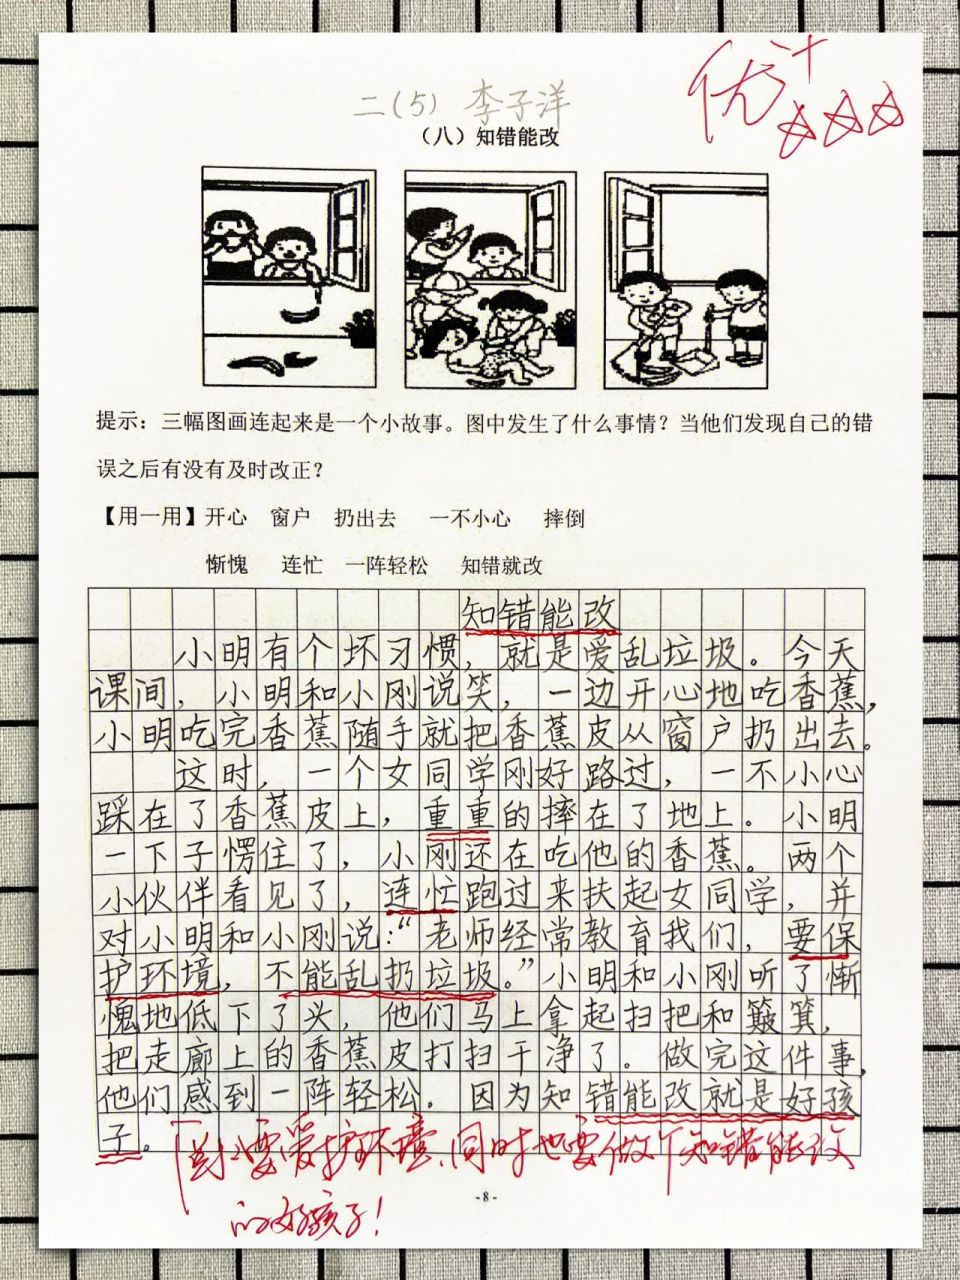 优+
二(5) 李子洋
（八）知错能改
提示：三幅图画连起来是一个小故事。图中发生了什么事情？当他们发现自己的错
误之后有没有及时改正？
【用一用】开心 窗户 扔出去 一不小心 摔倒
惭愧 连忙 一阵轻松 知错就改
知错能改
小明有个坏习惯，就是爱乱垃圾。今天
课间，小明和小刚说笑，一边开心地吃香蕉，
小明吃完香蕉随手就把香蕉皮从窗户扔出去。
这时，一个女同学刚好路过，一不小心
踩在了香蕉皮上，重重的摔在了地上。小明
一下子愣住了，小刚还在吃他的香蕉。两个
小伙伴看见了，连忙跑过来扶起女同学，并
对小明和小刚说：“老师经常教育我们，要保
护环境，不能乱扔垃圾。”小明和小刚听了惭
愧地低下了头，他们马上拿起扫把和簸箕，
把走廊上的香蕉皮打扫干净了。做完这件事，
他们感到一阵轻松．因为知错能改就是好孩
子。
要爱护环境、同时也要做个知错能改
的好孩子！
-8-